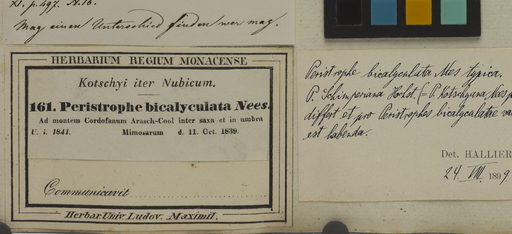 XI. p. 497. N. 16.
Mag einen Unterschied finden wer mag.
HERBARIUM REGIUM MONACENSE
Kotschyi iter Nubicum.
161. Peristrophe bicalyculata Nees.
Ad montem Cordofanum Arasch-Cool inter saxa et in umbra
U. i. 1841. Mimosarum d. 11. Oct. 1839.
Communicavit
Herbar Univ Ludov. Maximil.
Peristrophe bicalyculata Nees typica.
P. Schimperiana Hochst. (= P. Kotschyana Nees
differt et pro Peristrophes bicalyculatae
est habenda.
Det. HALLIER
24 VIII 189